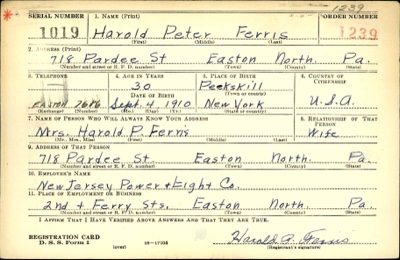 1239
SERIAL NUMBER 1. NAME (Print) ORDER NUMBER
1019 Harold Peter Ferris 1239
(First) (Middle) (Last)
2. ADDRESS (Print)
718 Pardee St Easton North. Pa.
(Number and street or R. F. D. number) (Town) (County) (State)
3. TELEPHONE 4. AGE IN YEARS 5. PLACE OF BIRTH 6. COUNTRY OF CITIZENSHIP
30 Peekskill
DATE OF BIRTH (Town or county)
EASTON 7686 Sept. 4, 1910 New York U.S.A
(Exchange) (Number) (Mo.) (Day) (Yr.) (State or country)
7. NAME OF PERSON WHO WILL ALWAYS KNOW YOUR ADDRESS 8. RELATIONSHIP OF THAT PERSON
Mrs. Harold P. Ferris Wife
(Mr., Mrs., Miss) (First) (Middle) (Last)
9. ADDRESS OF THAT PERSON
718 Pardee St. Easton North. Pa.
(Number and street or R. F. D. number) (Town) (County) (State)
10. EMPLOYER'S NAME
New Jersey Power & Light Co.
11. PLACE OF EMPLOYMENT OR BUSINESS
2nd & Ferry Sts. Easton North. Pa.
(Number and street or R. F. D. number) (Town) (County) (State)
I AFFIRM THAT I HAVE VERIFIED ABOVE ANSWERS AND THAT THEY ARE TRUE.
REGISTRATION CARD
D. S. S. Form 1 (over) Harold P. Ferris
(Registrant's signature)